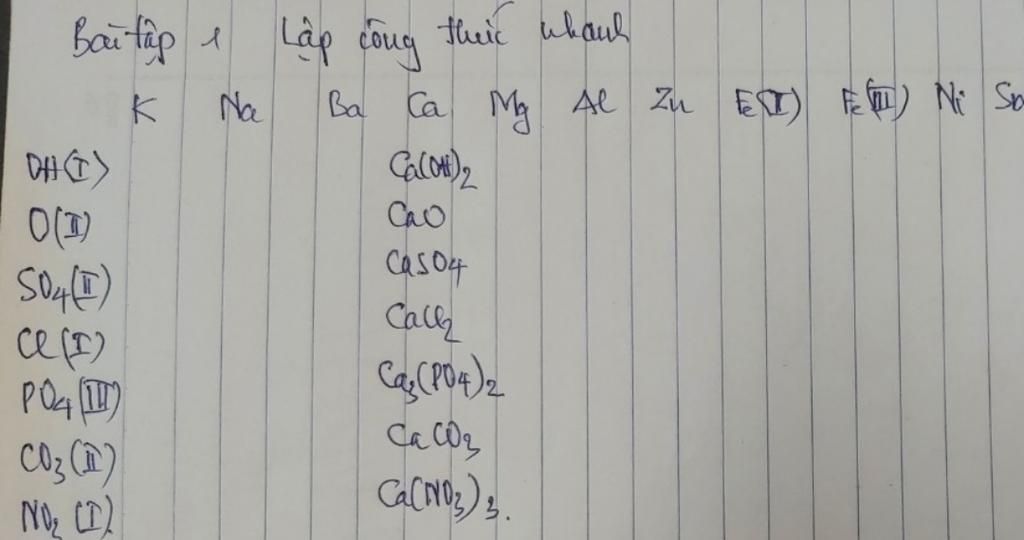 Bài tập 1 Lập công thức nhanh
K Na Ba Ca Mg Al Zn Fe(II) Fe(III) Ni Sn
OH(I) Ca(OH)2
O(II) CaO
SO4(II) CaSO4
Cl(I) CaCl2
PO4(III) Ca3(PO4)2
CO3(II) CaCO3
NO3(I) Ca(NO3)3.